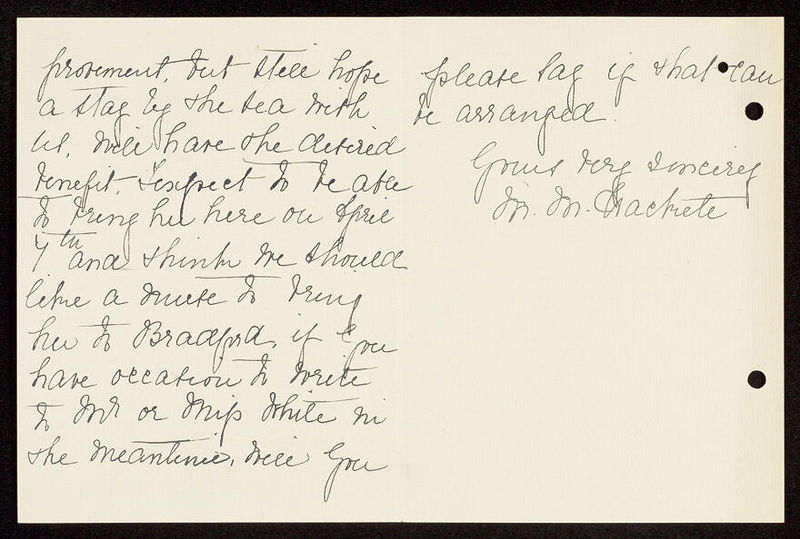 provement, but still hope
a stay by the sea with
us, will have the desired
benefit. I expect to be able
to bring her here on April
7th and think we should
like a nurse to bring
her to Bradford, if you
have occasion to write
to Mr or Miss White in
the meantime, will you
please say if that can
be arranged.
Yours very sincerely
M. M.